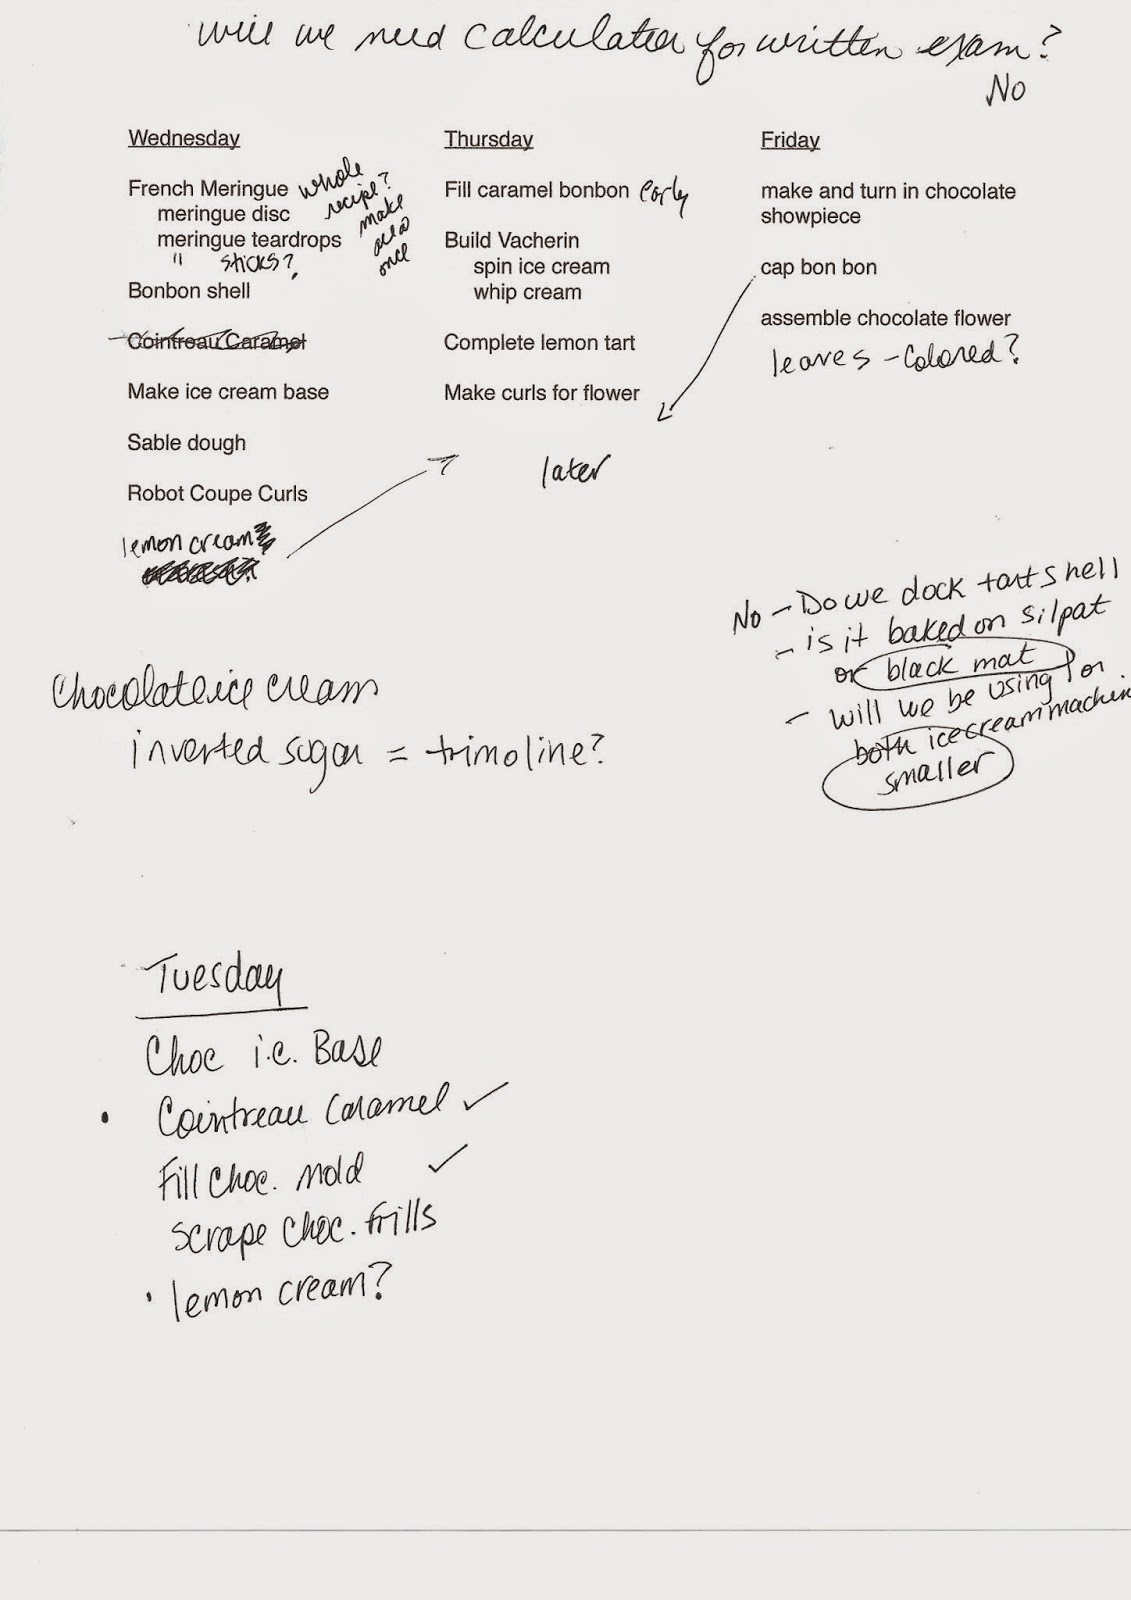 will we need calculator for written exam?
No
Wednesday
French Meringue whole recipe? make all once
meringue disc
meringue teardrops
" sticks?
Bonbon shell
Cointreau Caramel
Make ice cream base
Sable dough
Robot Coupe Curls
lemon cream
Thursday
Fill caramel bonbon early
Build Vacherin
spin ice cream
whip cream
Complete lemon tart
Make curls for flower
later
Friday
make and turn in chocolate
showpiece
cap bon bon
assemble chocolate flower
leaves - colored?
No - Do we dock tart shell
- is it baked on silpat
or black mat
- will we be using 1 or
both icecream machine
smaller
Chocolate ice cream
inverted sugar = trimoline?
Tuesday
Choc i.c. Base
• Cointreau Caramel ✓
Fill Choc. mold ✓
scrape choc. frills
• lemon cream?